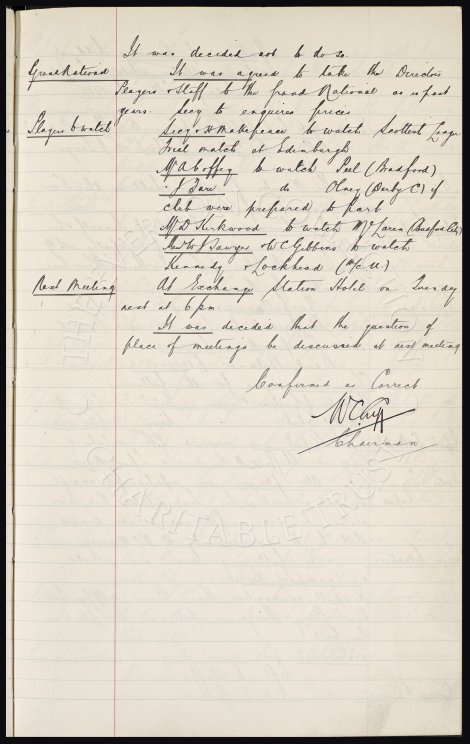 It was decided not to do so.
Grand National It was agreed to take the Directors
Players & Staff to the Grand National as in past
years. Secy to enquire prices
Players to watch Secy & H Makepeace to watch Scottish League
trial match at Edinburgh
Mr A Coffey to watch Peel (Bradford)
" J Fare do Olney (Derby C) if
club were prepared to part
Mr D Kirkwood to watch McLaren (Bradford City)
Messrs W J Sawyer & W C Gibbins to watch
Kennedy & Lochhead (M/c U.)
Next Meeting At Exchange Station Hotel on Tuesday
next at 6 pm.
It was decided that the question of
place of meetings be discussed at next meeting
Confirmed as Correct
W C Cuff
Chairman
CHARITABLE TRUST